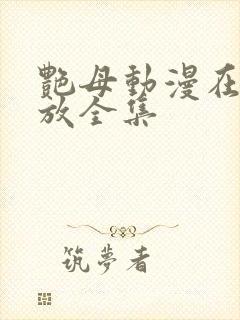 艷母動漫在
放全集
筑夢者